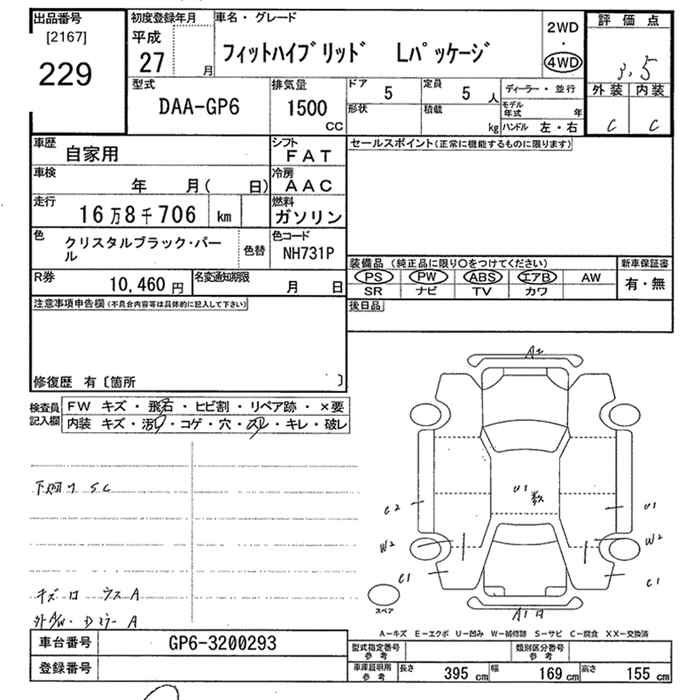 出品番号 初度登録年月 車名・グレード 評価点
[2167] 平成 2WD
229 27 月 フィットハイブリッド Lパッケージ ・ 3.5
4WD
型式 排気量 ドア 5 定員 5 人 ディーラー・並行 外装 内装
DAA-GP6 1500 cc 形状 積載 kg モデル年式 年 C C
ハンドル 左・右
車歴 自家用 シフト FAT セールスポイント(正常に機能するものに限ります)
車検 年 月( 日) 冷房 AAC
走行 16万8千706 km 燃料 ガソリン
色 クリスタルブラック・パール 色替 色コード NH731P
装備品 (純正品に限り○をつけてください) 新車保証書
PS PW ABS エアB AW 有・無
SR ナビ TV カワ
R券 10,460 円 名変通知期限 月 日
後日品
注意事項申告欄(不具合内容等は具体的に記入して下さい)
修復歴 有〔箇所 〕
検査員記入欄 FW キズ・飛石・ヒビ割・リペア跡・×要
内装 キズ・汚れ・コゲ・穴・スレ・キレ・破レ
A2
U1
C2 U1
W2 W2
C1 C1
スペア
下廻り SC
キズ
A
A
A1
A-キズ E-エクボ U-凹み W-補修跡 S-サビ C-腐食 XX-交換済
車台番号 GP6-3200293 型式指定番号参考 類別区分番号参考
登録番号 車庫証明用参考 長さ 395 cm 幅 169 cm 高さ 155 cm